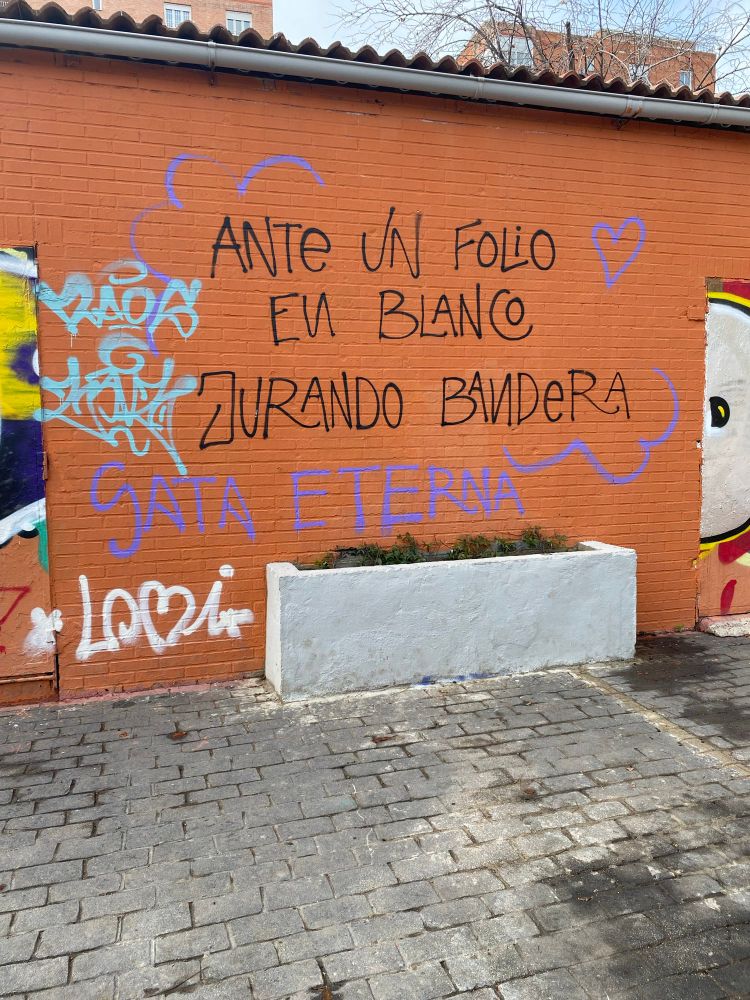 ANTE UN FOLIO
EN BLANCO
JURANDO BANDERA
GATA ETERNA
LOMI